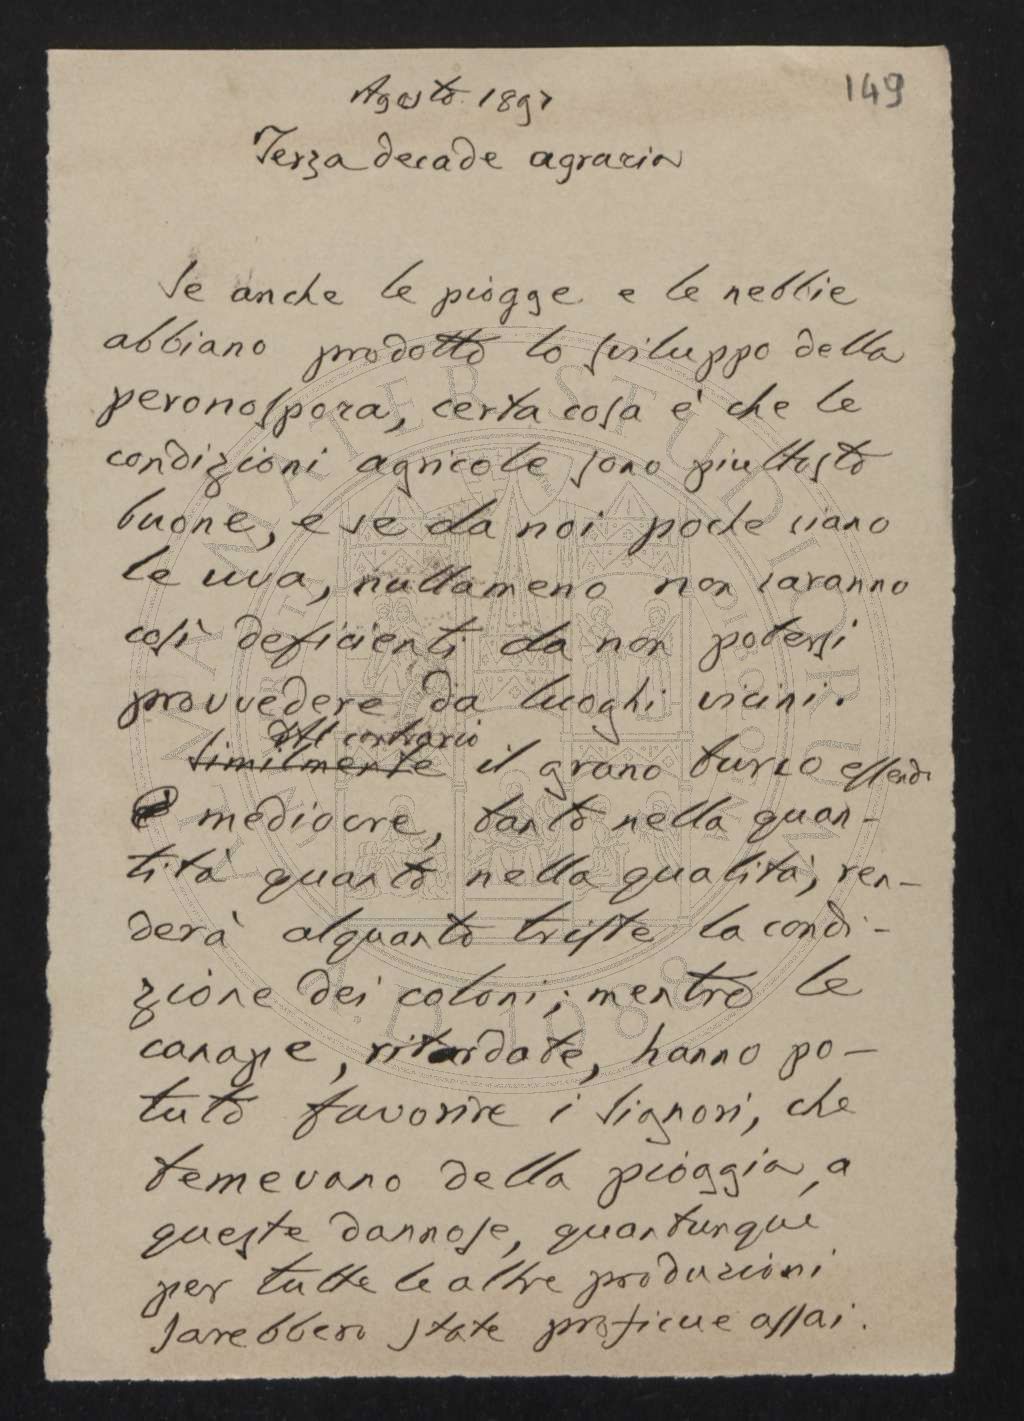 Agosto 1897
149
Terza decade agraria
Se anche le piogge e le nebbie
abbiano prodotto lo sviluppo della
peronospora, certa cosa è che le
condizioni agricole sono piuttosto
buone, e se da noi poche siano
le uva, nullameno non saranno
così deficienti da non potersi
provvedere da luoghi vicini.
All contrario
Similmente il grano turco essendo
è mediocre, tanto nella quan-
tità quanto nella qualità, ren-
derà alquanto triste la condi-
zione dei coloni; mentre le
canape, ritardate, hanno po-
tuto favorire i Signori, che
temevano della pioggia, a
queste dannose, quantunque
per tutte le altre produzioni
sarebbero state proficue assai.